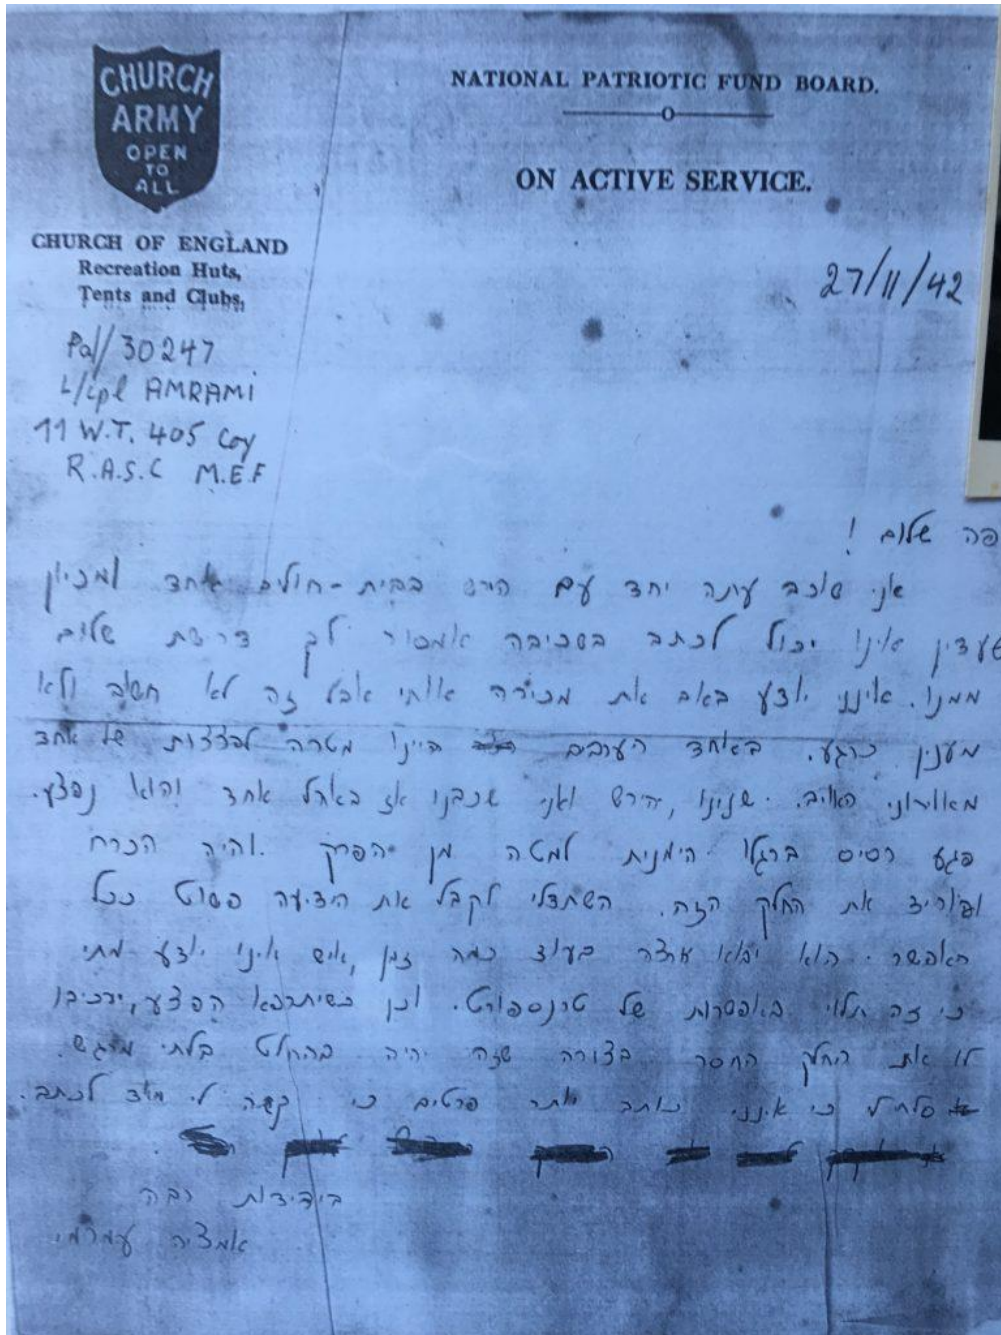 CHURCH
ARMY
OPEN
TO
ALL
NATIONAL PATRIOTIC FUND BOARD.
ON ACTIVE SERVICE.
CHURCH OF ENGLAND
Recreation Huts,
Tents and Clubs,
27/11/42
Pal/30247
L/cpl AMRAMI
11 W.T. 405 Coy
R.A.S.C M.E.F
פה שלום !
אני שוכב עתה יחד עם הירש בבית-חולים אחד ומכיון
שעדין אינו יכול לכתב בשכיבה אמסור לך דרישת שלום
ממנו. אינני יודע באם את מכירה אותי אבל זה לא חשוב ולא
מענין כרגע. באחד הערבים היינו מטרה לפצצות של אחד
מאוירוני האויב. שנינו, הירש ואני שכבנו אז באהל אחד והוא נפצע.
פגע רסיס ברגלו הימנית למטה מן הפרק. והיה הכרח
להוריד את החלק הזה. השתדלי לקבל את הידיעה פשוט ככל
האפשר. הוא יבוא ארצה בעוד כמה זמן, איש אינו יודע מתי
כי זה תלוי באפשרות של טרנספורט. וכן כשיתרפא הפצע, ירכיבו
לו את החלק החסר בצורה שזה יהיה בהחלט בלתי מורגש.
סלחי לי כי אינני כותב יותר פרטים כי קשה לי מאד לכתב.
בידידות רבה
אמציה עמרמי